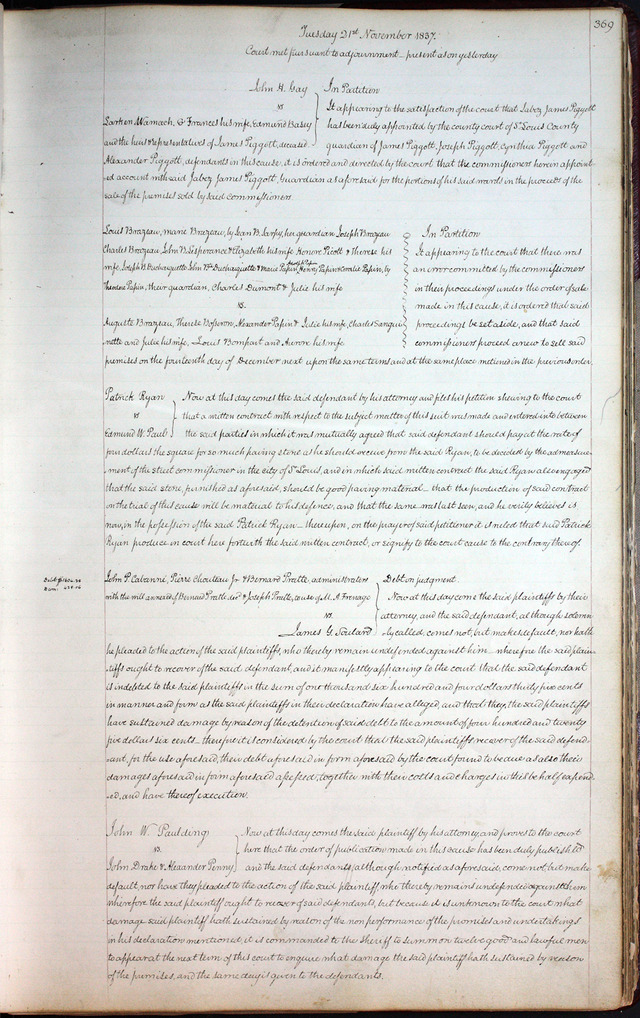 369
Tuesday 21st November 1837.
Court met pursuant to adjournment – present as on yesterday
John H. Gay
vs
Larken Wamach, & Frances his wife, Edmund Basey
and the heirs & representatives of James Piggott, deceased
In Partition
It appearing to the satisfaction of the court that Jabez James Piggott
has been duly appointed by the county court of St Louis County
guardian of James Piggott, Joseph Piggott, Cynthia Piggott and
Alexander Piggott, defendants in this cause, it is ordered and directed by the court that the commissioners herein appoint
ed account with said Jabez James Piggott, Guardian as aforesaid for the portions of his said wards in the proceeds of the
sale of the premises sold by said commissioners.
Louis Brazeau, Marie Brazeau, by Jean B. Sarpy, her guardian Joseph Brazeau
Charles Brazeau, John B. Lesperance & Elizabeth his wife Honore Picott & Therese his
wife, Joseph B. Duchouquette John Bte Duchouquette & Marie Papin, Henry Papin & Coralie Papin, by
Theodore Papin, their guardian, Charles Dumont & Julie his wife
vs.
Auguste Brazeau, Therese Bosseron, Alexander Papin & Julie his wife, Charles Sangui
nette and Julie his wife, Louis Bompart and Aurore his wife
In Partition
It appearing to the court that there was
an error committed by the commissioners
in their proceedings under the order of sale
made in this cause, it is ordered that said
proceedings be set aside, and that said
commissioners proceed anew to sell said
premises on the fourteenth day of December next upon the same terms and at the same place metioned in the previous order.
Patrick Ryan
vs
Edmund W. Paul
Now at this day comes the said defendant by his attorney and files his petition shewing to the court
that a written contract with respect to the subject matter of this suit was made and entered into between
the said parties in which it was mutually agreed that said defendant should pay at the rate of
four dollars the square for so much paving stone as he should receive from the said Ryan, to be decided by the admeasure-
ment of the street commissioner in the city of St Louis, and in which said written contract the said Ryan also engaged
that the said stone, furnished as aforesaid, should be good paving material – that the production of said contract
on the trial of this cause will be material to his defence, and that the same was last seen, and he verily believes is
now, in the possession of the said Patrick Ryan – thereupon, on the prayer of said petitioner it is ruled that said Patrick
Ryan produce in court here forthwith the said written contract, or signify to the court cause to the contrary thereof.
John P. Cabanné, Pierre Chouteau Jr & Bernard Pratte, administrators
with the will annexed of Bernard Pratte decd & Joseph Pratte, to use of M. A. Frenage
vs.
James G. Soulard
Debt on judgment.
Now at this day come the said plaintiffs by their
attorney, and the said defendant, although solemn-
ly called, comes not, but makes default, nor hath
he pleaded to the action of the said plaintiffs, who thereby remain undefended against him – wherefore the said plain-
tiffs ought to recover of the said defendant, and it manifestly appearing to the court that the said defendant
is indebted to the said plaintiffs in the sum of one thousand six hundred and four dollars thirty five cents
in manner and form as the said plaintiffs in their declaration have alleged, and that they, the said plaintiffs
have sustained damage by reason of the detention of said debt to the amount of four hundred and twenty
five dollars six cents – therefore it is considered by the court that the said plaintiffs recover of the said defend-
ant, for the use aforesaid, their debt aforesaid in form aforesaid by the court found to be due as also their
damages aforesaid in form aforesaid assessed, together with their costs and charges in this behalf expend-
ed, and have thereof execution.
John W. Paulding
vs.
John Drake & Alexander Penny
Now at this day comes the said plaintiff by his attorney, and proves to the court
here that the order of publication made in this cause has been duly published
and the said defendants, although notified as aforesaid, come not, but make
default, nor have they pleaded to the action of the said plaintiff who thereby remains undefended against them
wherefore the said plaintiff ought to recover of said defendants, but because it is unknown to the court what
damage said plaintiff hath sustained by reason of the non performance of the promises and undertakings
in his declaration mentioned, it is commanded to the Sheriff to summon twelve good and lawful men
to appear at the next term of this court to enquire what damage the said plaintiff hath sustained by reason
of the premises, and the same day is given to the defendants.